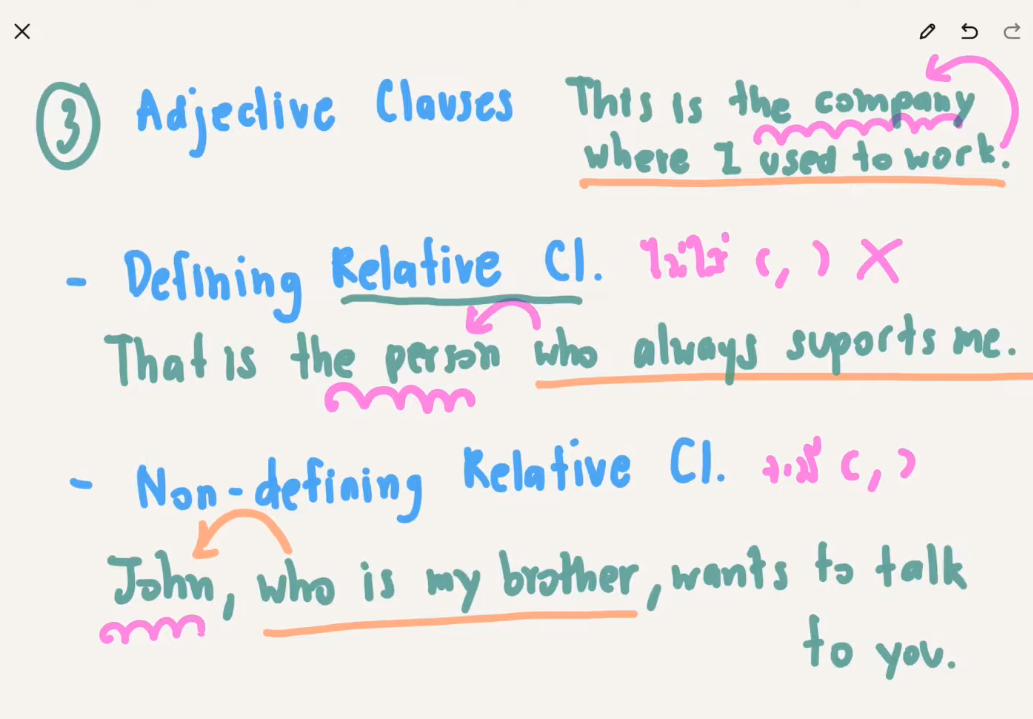 3 Adjective Clauses
This is the company
where I used to work.
- Defining Relative Cl. ไม่ใช้ ( , ) X
That is the person who always suports me.
- Non-defining Relative Cl. ( , )
John, who is my brother, wants to talk
to you.